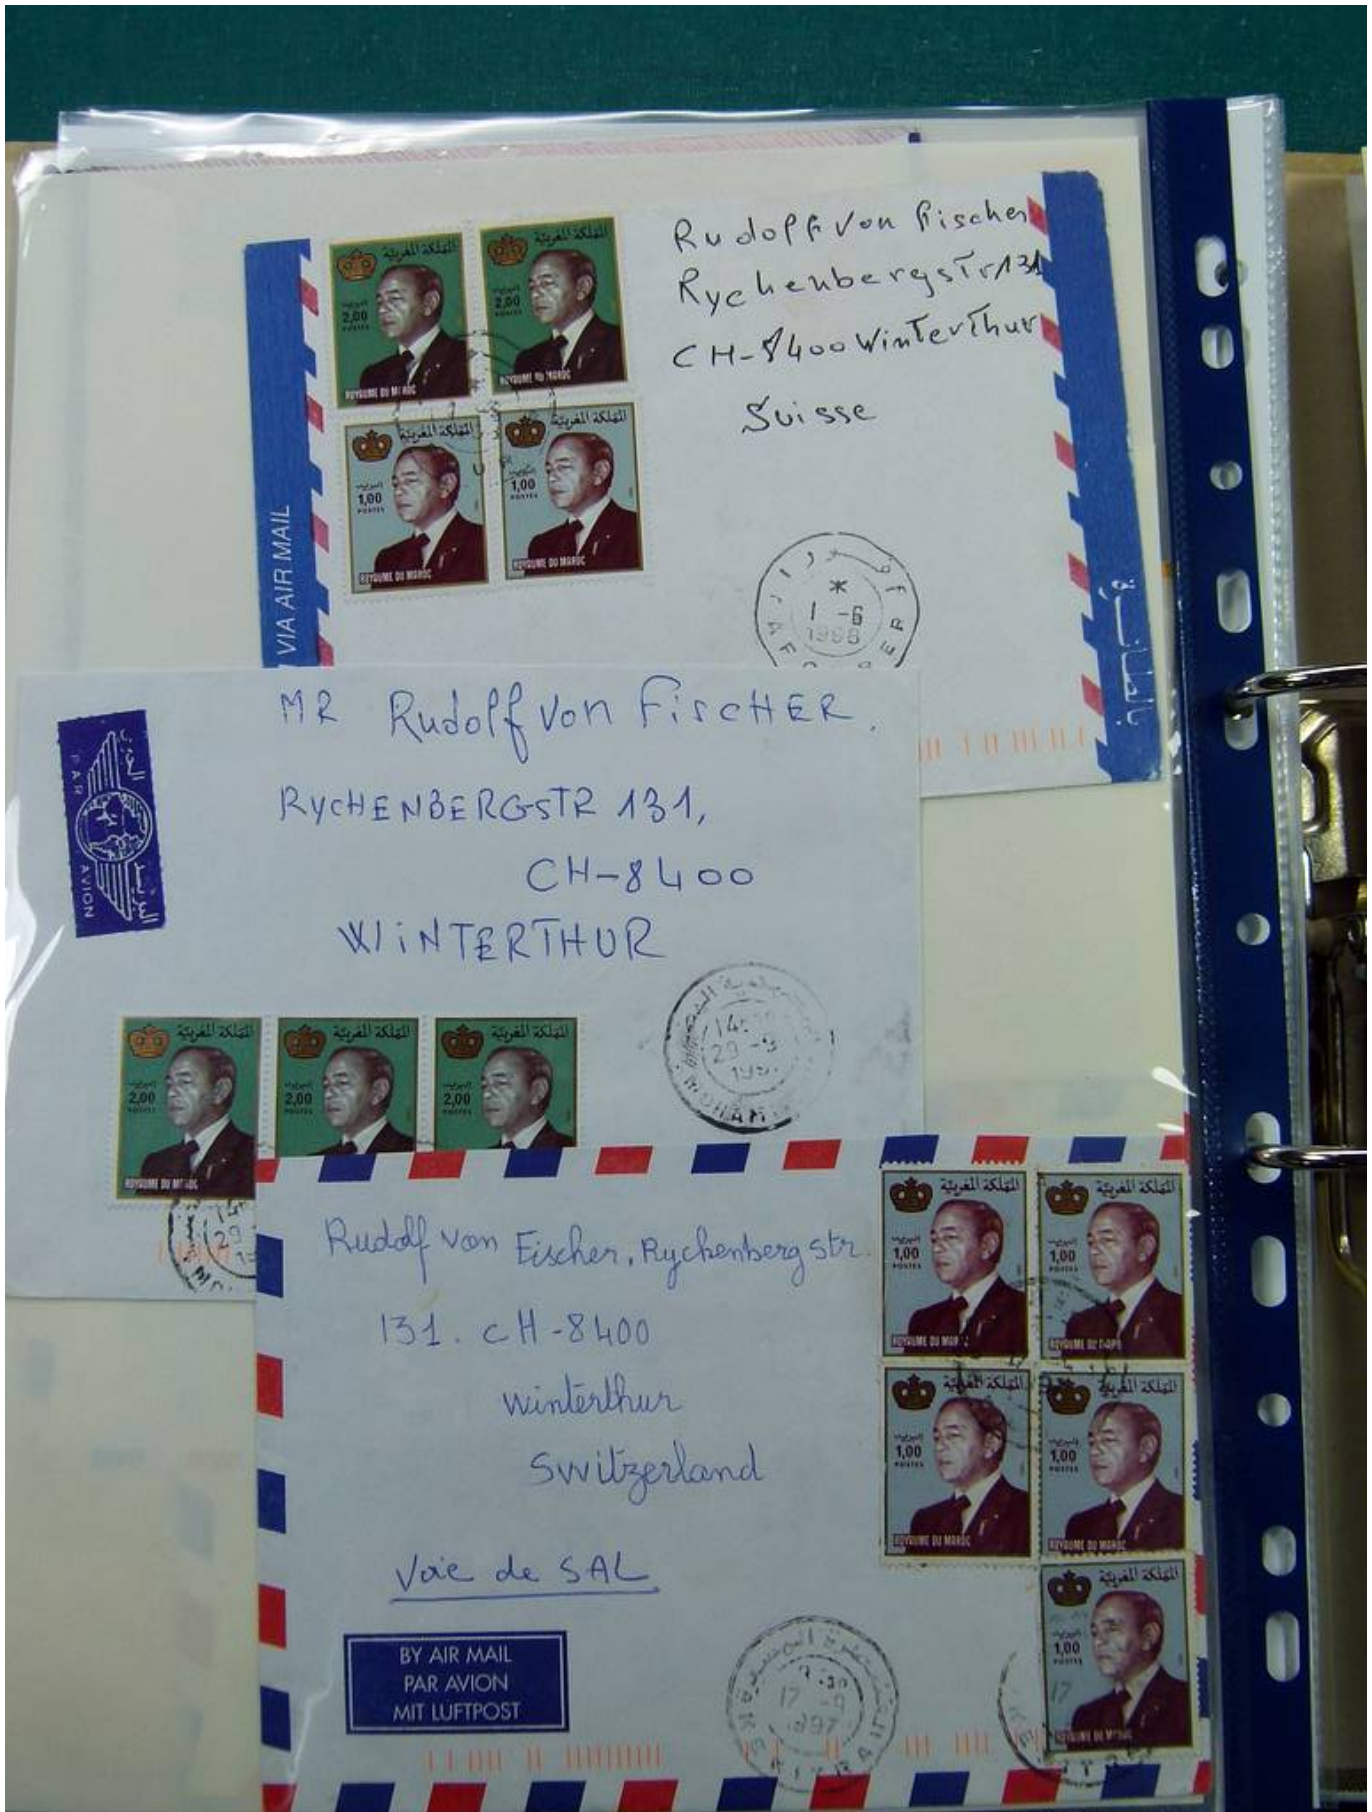 المملكة المغربية
2,00
POSTES
ROYAUME DU MAROC
المملكة المغربية
2,00
POSTES
ROYAUME DU MAROC
المملكة المغربية
1,00
POSTES
ROYAUME DU MAROC
المملكة المغربية
1,00
POSTES
ROYAUME DU MAROC
VIA AIR MAIL
Rudolf von Fischer
Rychenbergstr 131
CH-8400 Winterthur
Suisse
1 -6
MR Rudolf von FiscHER.
RYCHENBERGSTR 131,
CH-8400
WiNTERTHUR
البريد الجوي
PAR AVION
29 -9
المملكة المغربية
2,00
POSTES
ROYAUME DU MAROC
المملكة المغربية
2,00
POSTES
المملكة المغربية
2,00
POSTES
Rudolf von Fischer, Rychenberg str.
131. CH-8400
Winterthur
Switzerland
Voie de SAL
BY AIR MAIL
PAR AVION
MIT LUFTPOST
المملكة المغربية
1,00
POSTES
ROYAUME DU MAROC
المملكة المغربية
1,00
POSTES
ROYAUME DU MAROC
المملكة المغربية
1,00
POSTES
ROYAUME DU MAROC
المملكة المغربية
1,00
POSTES
ROYAUME DU MAROC
المملكة المغربية
1,00
POSTES
ROYAUME DU MAROC
17 -9